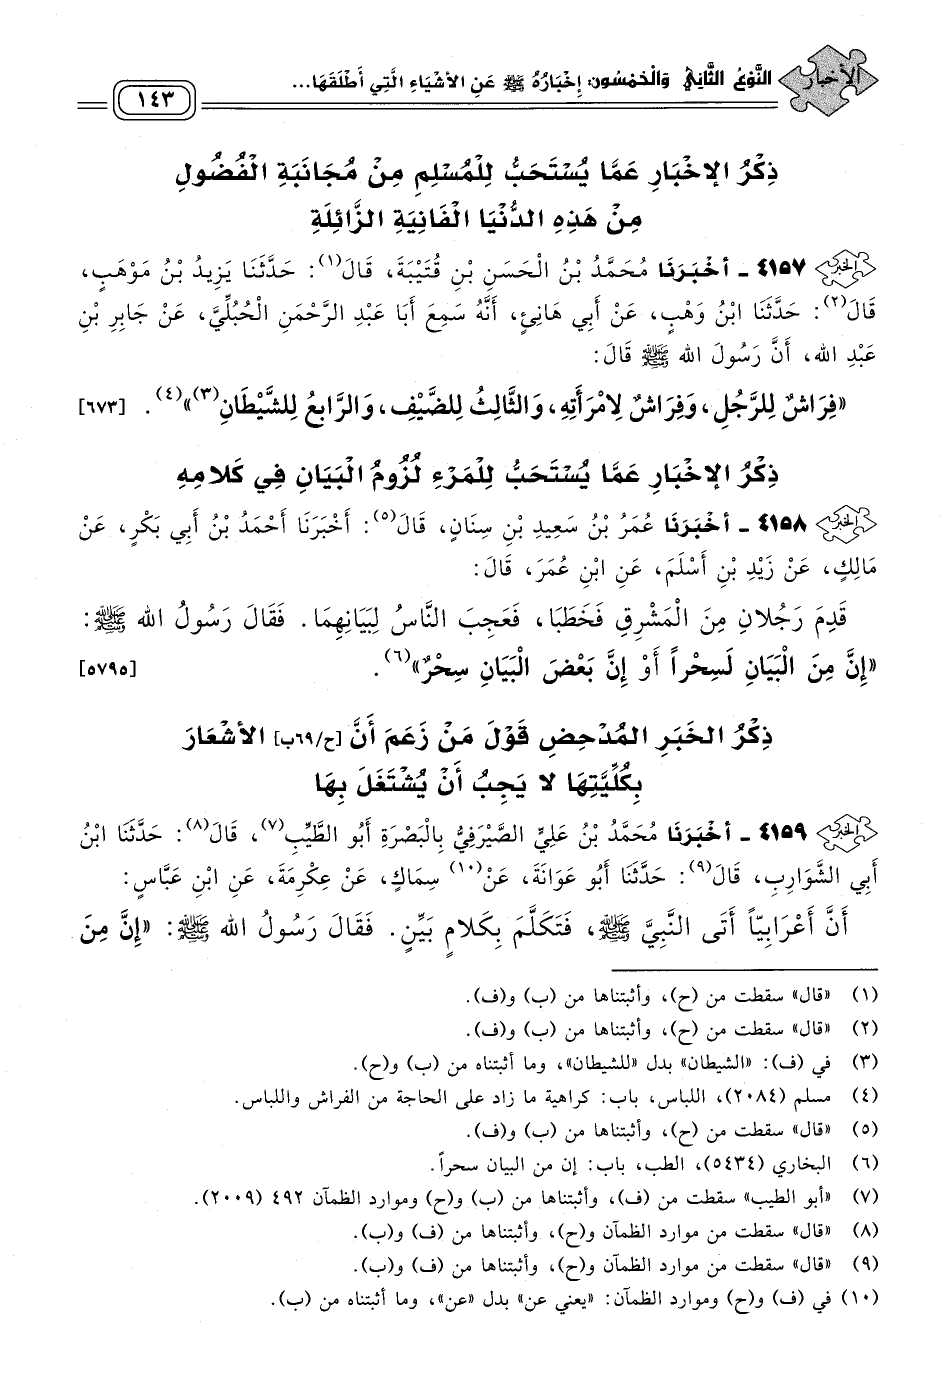 الأخبار النَّوْعُ الثَّانِي وَالْخَمْسُون: إِخْبَارُهُ ﷺ عَنِ الأَشْيَاءِ الَّتِي أَطْلَقَهَا...
١٤٣
ذِكْرُ الإخْبَارِ عَمَّا يُسْتَحَبُّ لِلْمُسْلِمِ مِنْ مُجَانَبَةِ الْفُضُولِ
مِنْ هَذِهِ الدُّنْيَا الْفَانِيَةِ الزَّائِلَةِ
٤١٥٧ - أخْبَرَنَا مُحَمَّدُ بْنُ الْحَسَنِ بْنِ قُتَيْبَةَ، قَالَ(١): حَدَّثَنَا يَزِيدُ بْنُ مَوْهَبٍ،
قَالَ(٢): حَدَّثَنَا ابْنُ وَهْبٍ، عَنْ أَبِي هَانِئٍ، أَنَّهُ سَمِعَ أَبَا عَبْدِ الرَّحْمَنِ الْحُبُلِّيَّ، عَنْ جَابِرِ بْنِ
عَبْدِ الله، أَنَّ رَسُولَ الله ﷺ قَالَ:
«فِرَاشٌ لِلرَّجُلِ، وَفِرَاشٌ لِامْرَأَتِهِ، وَالثَّالِثُ لِلضَّيْفِ، وَالرَّابِعُ لِلشَّيْطَانِ(٣)»(٤). [٦٧٣]
ذِكْرُ الإخْبَارِ عَمَّا يُسْتَحَبُّ لِلْمَرْءِ لُزُومُ الْبَيَانِ فِي كَلامِهِ
٤١٥٨ - أخْبَرَنَا عُمَرُ بْنُ سَعِيدِ بْنِ سِنَانٍ، قَالَ(٥): أَخْبَرَنَا أَحْمَدُ بْنُ أَبِي بَكْرٍ، عَنْ
مَالِكٍ، عَنْ زَيْدِ بْنِ أَسْلَمَ، عَنِ ابْنِ عُمَرَ، قَالَ:
قَدِمَ رَجُلانِ مِنَ الْمَشْرِقِ فَخَطَبَا، فَعَجِبَ النَّاسُ لِبَيَانِهِمَا. فَقَالَ رَسُولُ الله ﷺ:
«إِنَّ مِنَ الْبَيَانِ لَسِحْراً أَوْ إِنَّ بَعْضَ الْبَيَانِ سِحْرٌ»(٦). [٥٧٩٥]
ذِكْرُ الخَبَرِ المُدْحِضِ قَوْلَ مَنْ زَعَمَ أَنَّ [ح/٦٩ب] الأشْعَارَ
بِكُلِّيَّتِهَا لا يَجِبُ أَنْ يُشْتَغَلَ بِهَا
٤١٥٩ - أخْبَرَنَا مُحَمَّدُ بْنُ عَلِيٍّ الصَّيْرَفِيُّ بِالْبَصْرَةِ أَبُو الطَّيِّبِ(٧)، قَالَ(٨): حَدَّثَنَا ابْنُ
أَبِي الشَّوَارِبِ، قَالَ(٩): حَدَّثَنَا أَبُو عَوَانَةَ، عَنْ(١٠) سِمَاكٍ، عَنْ عِكْرِمَةَ، عَنِ ابْنِ عَبَّاسٍ:
أَنَّ أَعْرَابِيّاً أَتَى النَّبِيَّ ﷺ، فَتَكَلَّمَ بِكَلامٍ بَيِّنٍ. فَقَالَ رَسُولُ الله ﷺ: «إِنَّ مِنَ
(١) «قال» سقطت من (ح)، وأثبتناها من (ب) و(ف).
(٢) «قال» سقطت من (ح)، وأثبتناها من (ب) و(ف).
(٣) في (ف): «الشيطان» بدل «للشيطان»، وما أثبتناه من (ب) و(ح).
(٤) مسلم (٢٠٨٤)، اللباس، باب: كراهية ما زاد على الحاجة من الفراش واللباس.
(٥) «قال» سقطت من (ح)، وأثبتناها من (ب) و(ف).
(٦) البخاري (٥٤٣٤)، الطب، باب: إن من البيان سحراً.
(٧) «أبو الطيب» سقطت من (ف)، وأثبتناها من (ب) و(ح) وموارد الظمآن ٤٩٢ (٢٠٠٩).
(٨) «قال» سقطت من موارد الظمآن و(ح)، وأثبتناها من (ف) و(ب).
(٩) «قال» سقطت من موارد الظمآن و(ح)، وأثبتناها من (ف) و(ب).
(١٠) في (ف) و(ح) وموارد الظمآن: «يعني عن» بدل «عن»، وما أثبتناه من (ب).